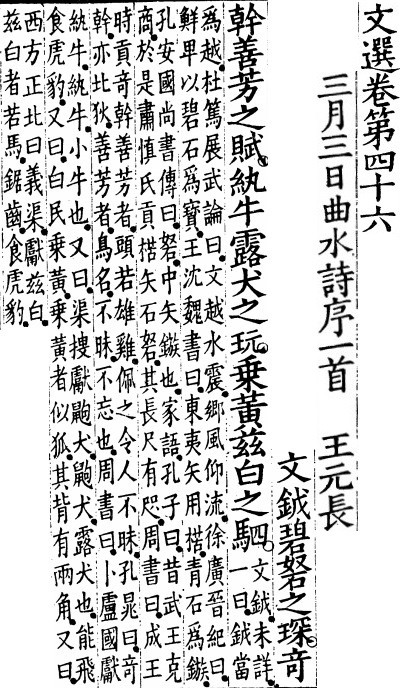 文選卷第四十六
三月三日曲水詩序一首　王元長
文鉞碧砮之琛。奇
幹善芳之賦。紈牛露犬之玩。乘黃茲白之駟。文鉞未詳。
一曰鉞當
為越杜篤展武論曰文越水震鄉風仰流徐廣晉紀曰
鮮卑以碧石為寶王沈魏書曰東夷矢用楛青石為鏃
孔安國尚書傳曰砮中矢鏃也家語孔子曰昔武王克
商於是肅慎氏貢楛矢石砮其長尺有咫周書曰成王
時貢奇幹善芳者頭若雄雞佩之令人不昧孔晁曰奇
幹亦北狄善芳者鳥名不昧不忘也周書曰卜盧國獻
紈牛紈牛小牛也又曰渠搜獻鼩犬鼩犬露犬也能飛
食虎豹又曰白民乘黃乘黃者似狐其背有兩角又曰
西方正北曰義渠獻茲白
茲白者若馬鋸齒食虎豹